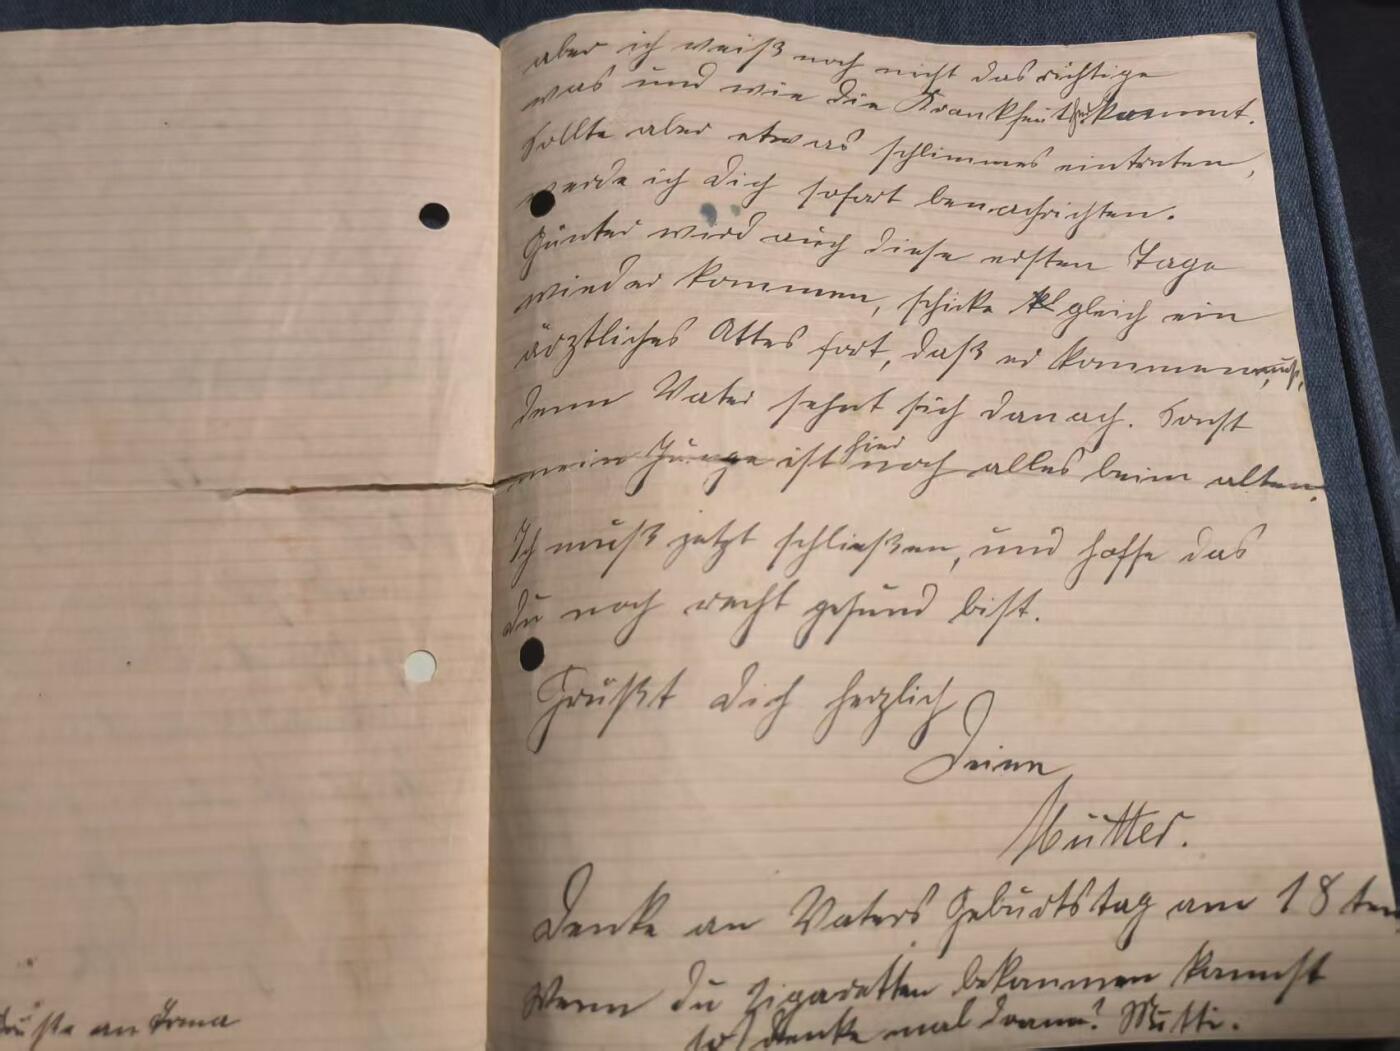 aber ich weiß noch nicht das richtige
was und wie die Krankheit kommt.
Sollte aber etwas schlimmes eintreten,
werde ich Dich sofort benachrichten.
Günter wird auch diese ersten Tage
wieder kommen, schicke gleich ein
ärztliches Attes fort, daß er kommen muß,
denn Vater sehnt sich danach. Sonst
mein Junge ist hier noch alles beim alten.
Ich muß jetzt schließen, und hoffe das
Du noch recht gesund bist.
Grüßt Dich herzlich
Deine
Mutter.
Denke an Vaters Geburtstag am 18ten
Wenn Du Zigaretten bekommen kannst
so denke mal daran! Mutti.
Grüße an Irma